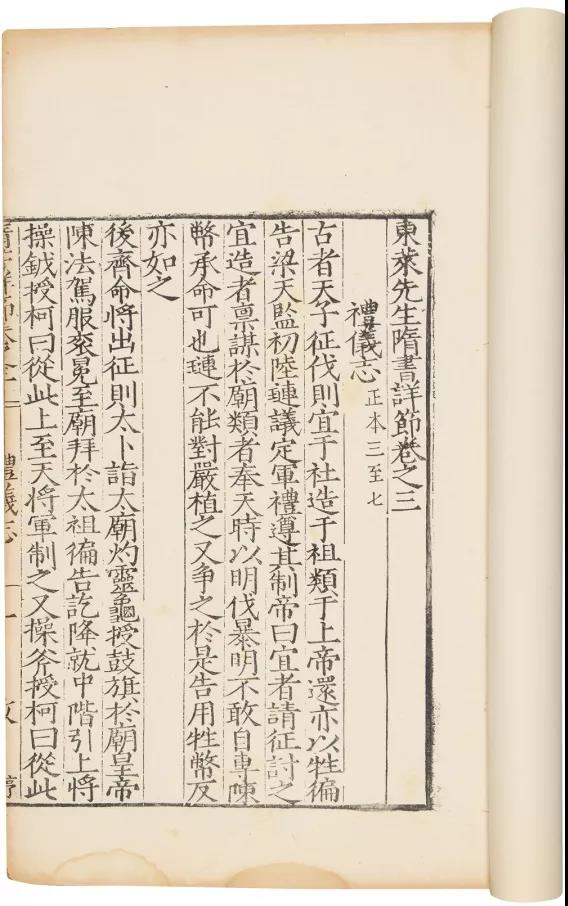 東萊先生隋書詳節卷之三
禮儀志 正本三至七
古者天子征伐則宜于社造于祖類于上帝還亦以牲徧
告梁天監初陸璉議定軍禮遵其制帝曰宜者請征討之
宜造者稟謀於廟類者奉天時以明伐暴明不敢自專陳
幣承命可也璉不能對嚴植之又争之於是告用牲幣反
亦如之
後齊命將出征則太卜詣太廟灼靈龜授鼓旗於廟皇帝
陳法駕服衮冕至廟拜於太祖徧告訖降就中階引上將
操鉞授柯曰從此上至天將軍制之又操斧授柯曰從此
禮儀志 一